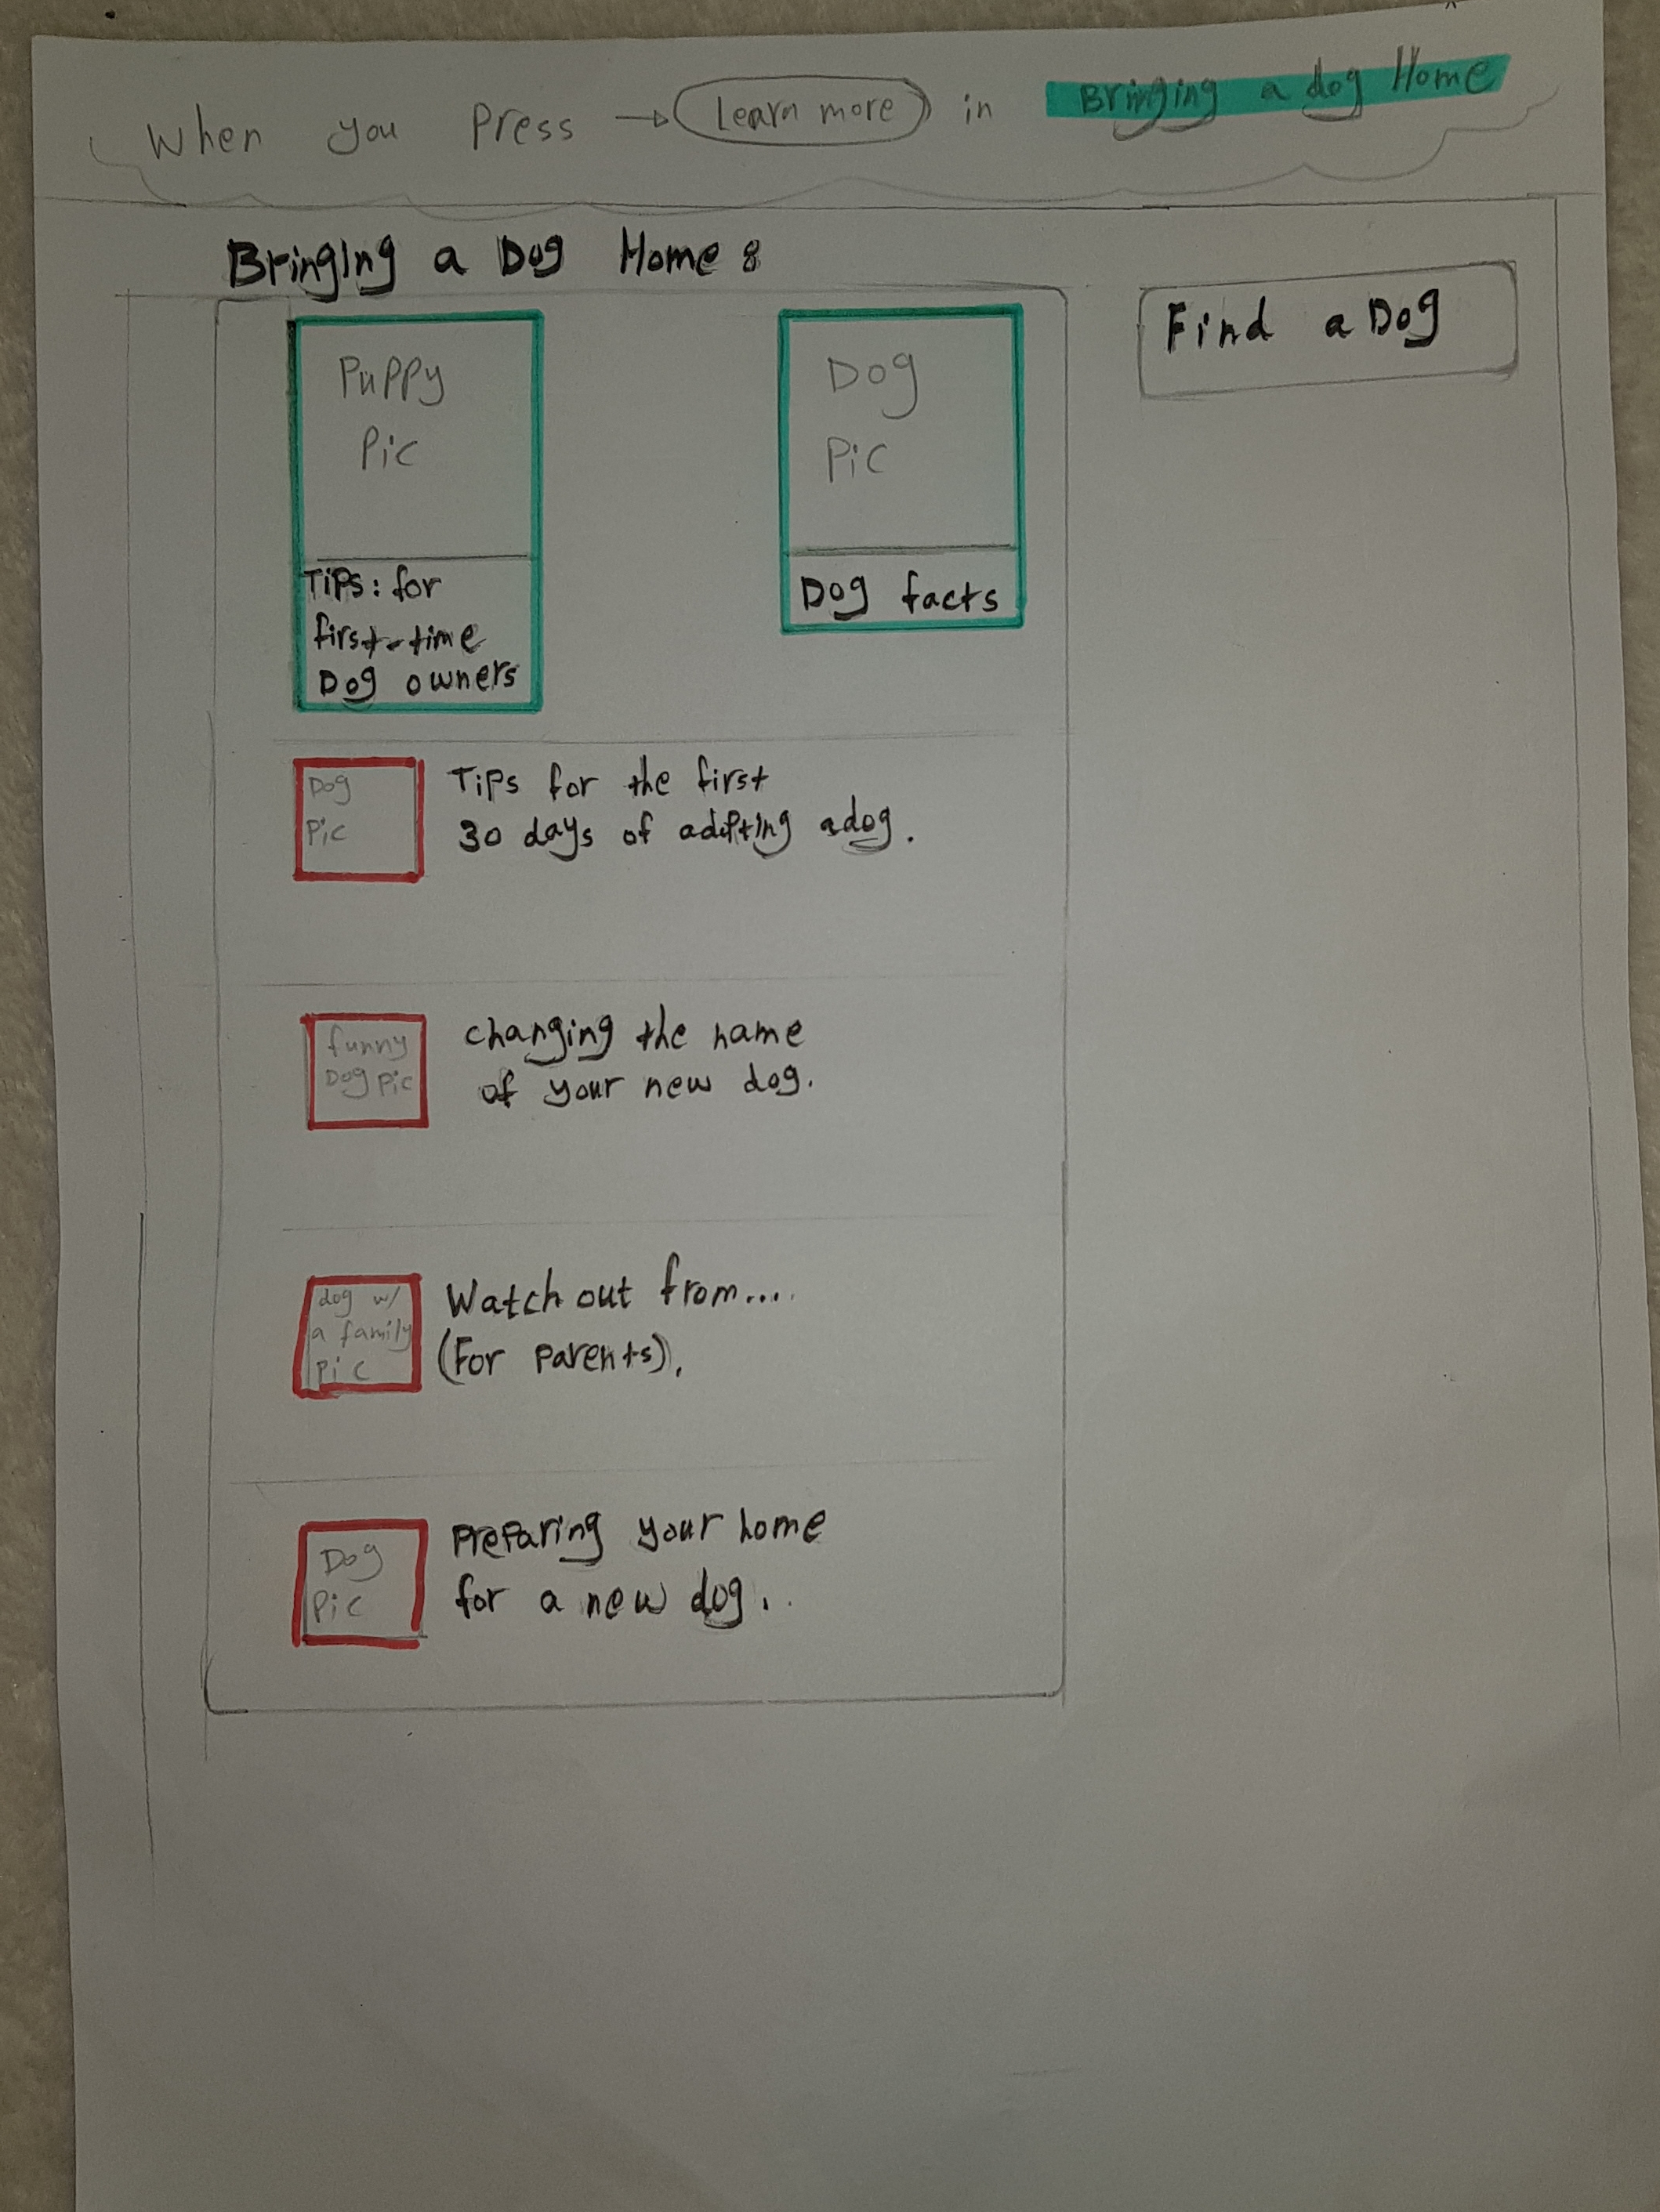 When you press → Learn more in Bringing a dog Home
Bringing a Dog Home :
Find a Dog
Puppy
Pic
Tips: for
first-time
Dog owners
Dog
Pic
Dog facts
Dog
Pic
Tips for the first
30 days of adipting a dog.
funny
Dog Pic
changing the name
of your new dog.
dog w/
a family
Pic
Watch out from....
(For parents).
Dog
Pic
Preparing your home
for a new dog.